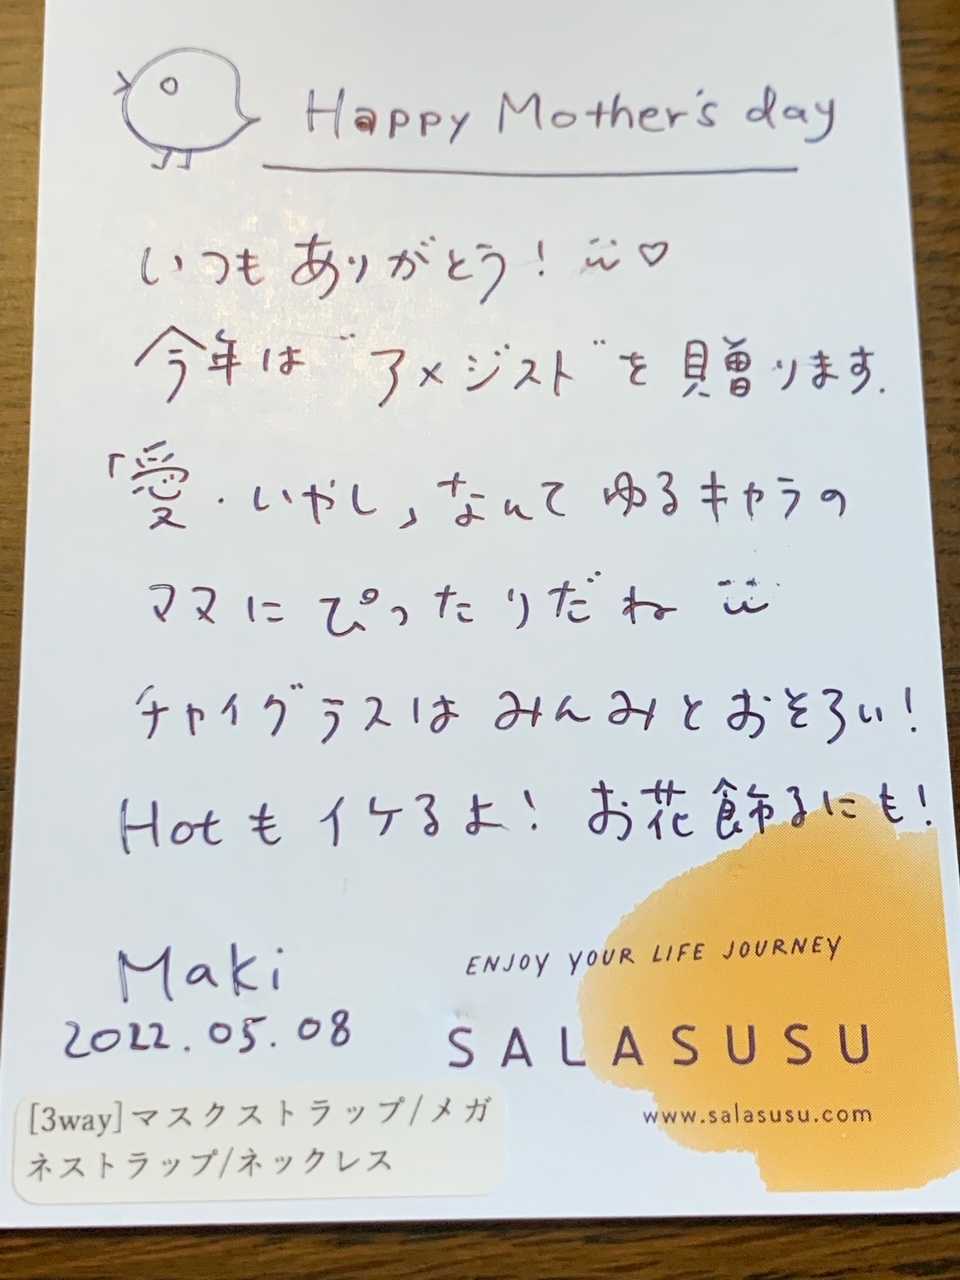 Happy Mother's day
いつもありがとう！♡
今年は"アメジスト"を贈ります.
「愛・いやし」なんてゆるキャラの
ママにぴったりだね
チャイグラスはみんみとおそろい！
Hotもイケるよ！お花飾るにも！
Maki
2022.05.08
ENJOY YOUR LIFE JOURNEY
SALASUSU
www.salasusu.com
[3way]マスクストラップ/メガ
ネストラップ/ネックレス